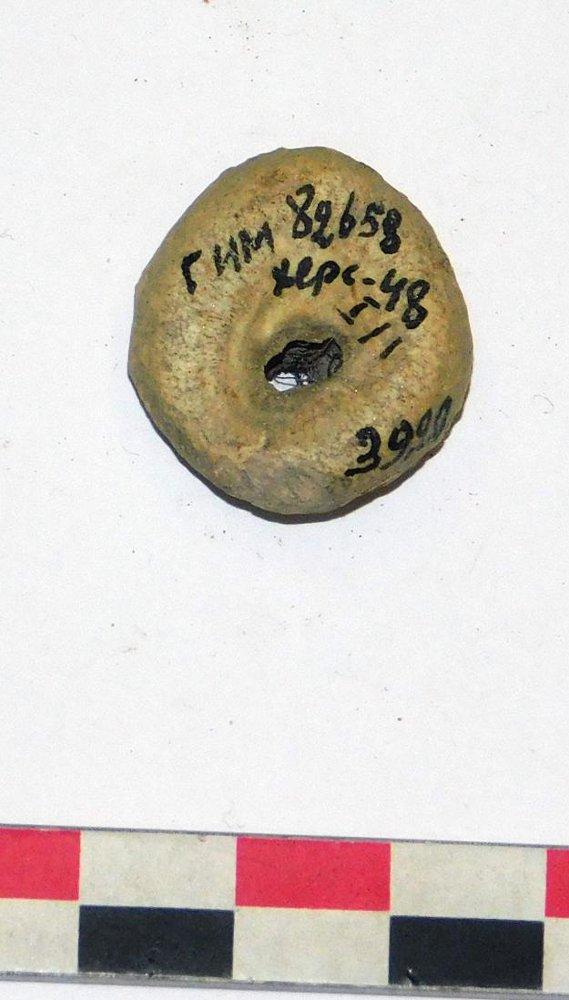 ГИМ 82658
херс-48
III
3990